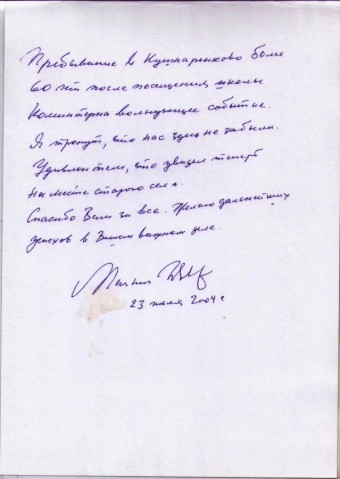 Пребывание в Кушнаренково более
60 лет после посещения школы
Коминтерна волнующее событие.
Я тронут, что нас здесь не забыли.
Удивлен тем, что увидел теперь
на месте старого села.
Спасибо Вам за все. Желаю дальнейших
успехов в Вашем важном деле.
23 июля 2004 г